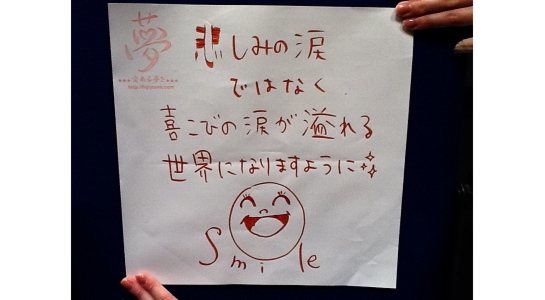 夢
悲しみの涙
ではなく
喜こびの涙が溢れる
世界になりますように
Smile